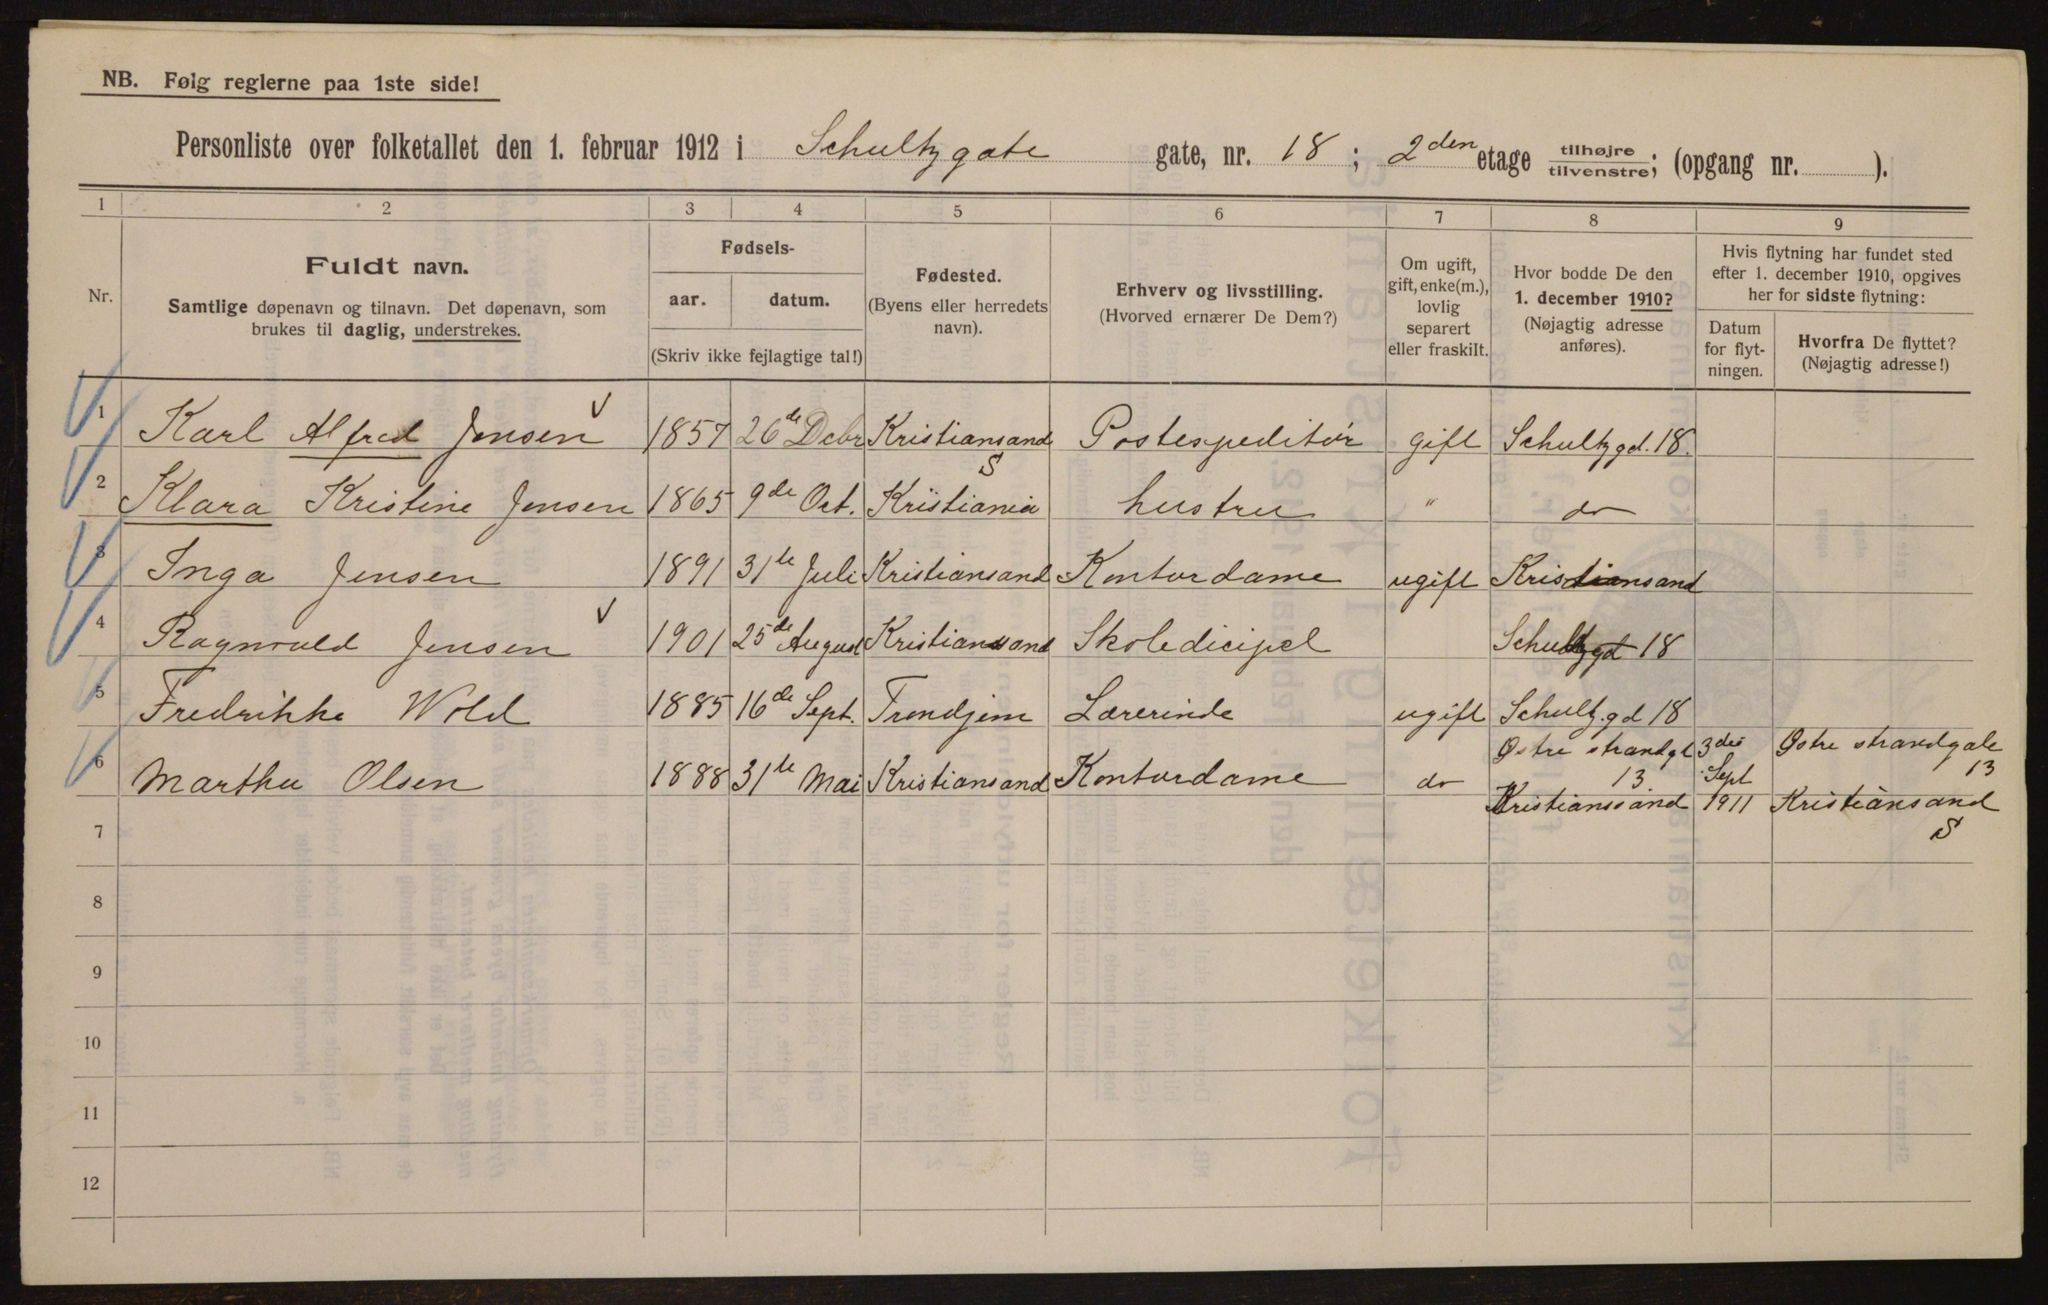 NB. Følg reglerne paa 1ste side!
Personliste over folketallet den 1. februar 1912 i Schultzgate gate, nr. 18 ; 2den etage tilhøjre / tilvenstre; (opgang nr. ).
1 2 3 4 5 6 7 8 9
Nr.
Fuldt navn.
Samtlige døpenavn og tilnavn. Det døpenavn, som
brukes til daglig, understrekes.
Fødsels-
aar. datum.
(Skriv ikke fejlagtige tal!)
Fødested.
(Byens eller herredets
navn).
Erhverv og livsstilling.
(Hvorved ernærer De Dem?)
Om ugift,
gift, enke(m.),
lovlig
separert
eller fraskilt.
Hvor bodde De den
1. december 1910?
(Nøjagtig adresse
anføres).
Hvis flytning har fundet sted
efter 1. december 1910, opgives
her for sidste flytning:
Datum
for flyt-
ningen.
Hvorfra De flyttet?
(Nøjagtig adresse!)
1 Karl Alfred Jensen 1857 26de Debr Kristiansand S Postespeditør gift Schultzgd. 18.
2 Klara Kristine Jensen 1865 9de Oct. Kristiania hustru " do
3 Inga Jensen 1891 31te Juli Kristiansand Kontordame ugift Kristiansand
4 Ragnvald Jensen 1901 25de August Kristiansand Skoledicipel Schultzgd 18
5 Fredrikke Wold 1885 16de Sept. Trondjem Lærerinde ugift Schultz.gd 18
6 Martha Olsen 1888 31te Mai Kristiansand Kontordame do Østre strandgt 13 Kristianssand 3die Sept 1911 Østre strandgate 13 Kristiansand S
7
8
9
10
11
12